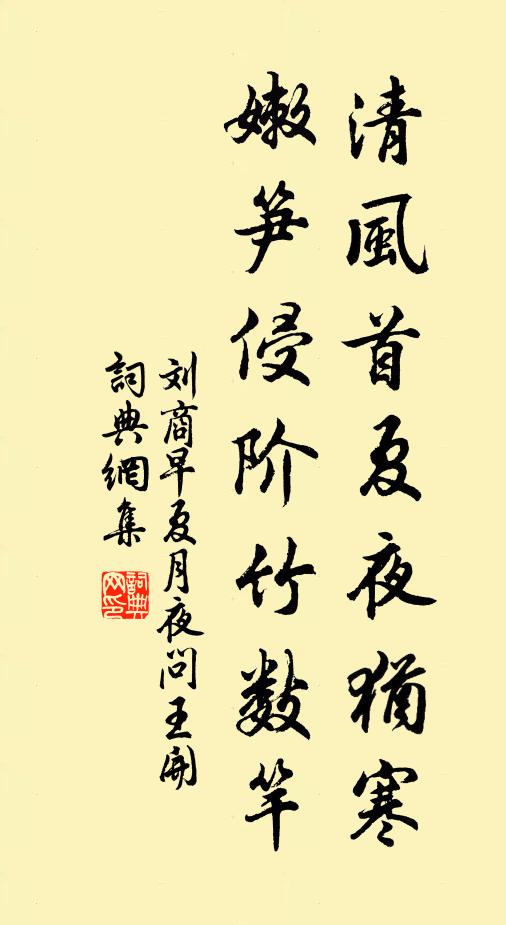 清風首夏夜猶寒
嫩笋侵阶竹数竿
刘商早夏月夜问王開
詞典網集
詞典
网印